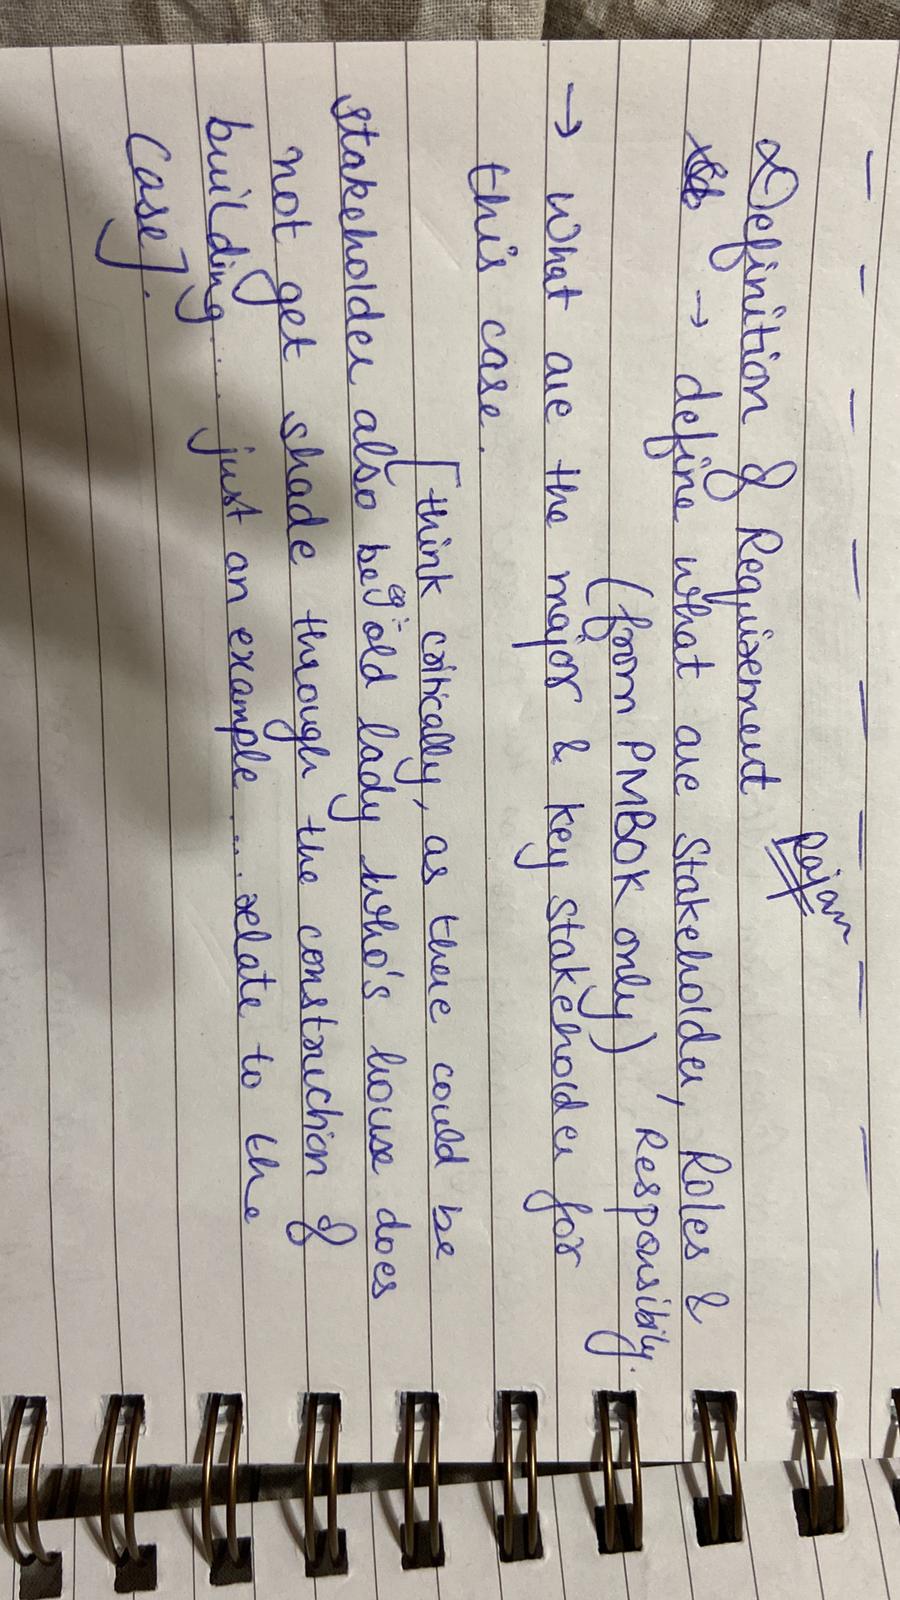 Rajan
Definition & Requirement
→ define what are Stakeholder, Roles &
Responsibily.
(from PMBOK only)
→ What are the major & key stakeholder for
this case.
[think critically, as there could be
stakeholder also be eg:- old lady who's house does
not get shade through the construction of
building.... just an example .... relate to the
case].